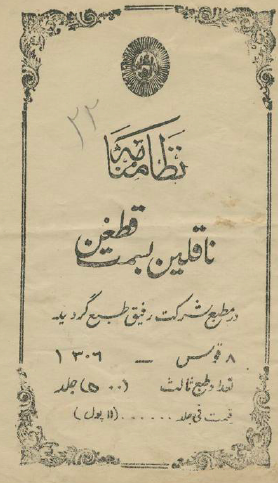 ۲۲
نظامنامه
ناقلین بسمت قطغن
در مطبع شرکت رفیق طبع گردید
۸ قوس — ۱۳۰۶
تعداد طبع ثالث (۵۰۰) جلد
قیمت فی جلد ...... (۱۱ پول)